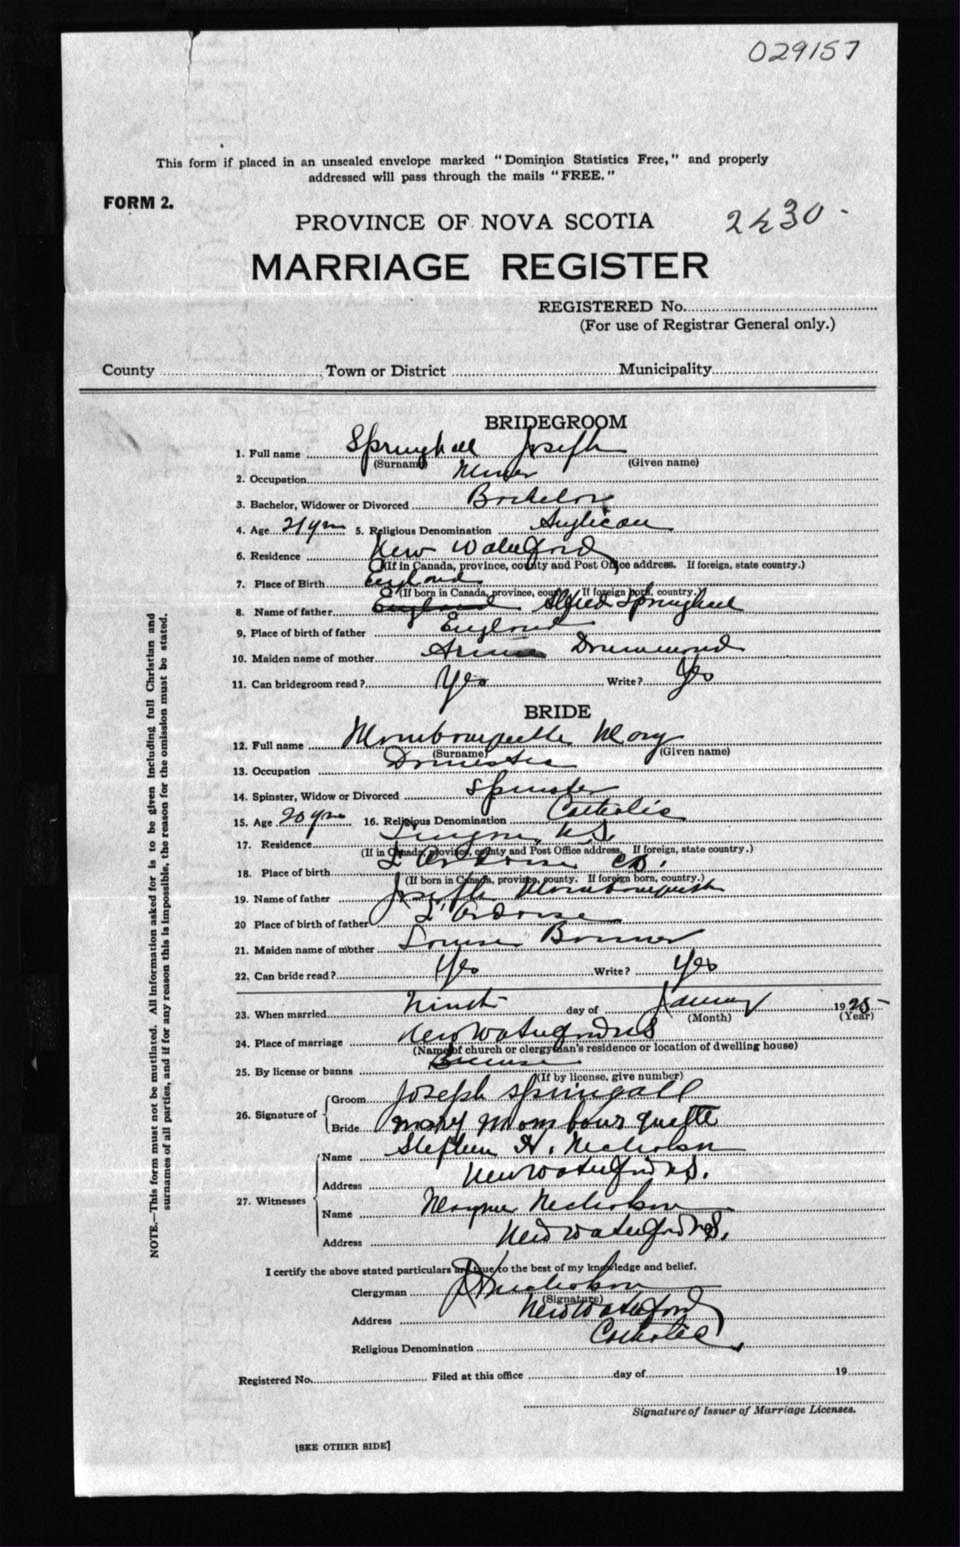 029157
This form if placed in an unsealed envelope marked "Dominion Statistics Free," and properly
addressed will pass through the mails "FREE."
FORM 2.
PROVINCE OF NOVA SCOTIA
2430-
MARRIAGE REGISTER
REGISTERED No.
(For use of Registrar General only.)
County Town or District Municipality
BRIDEGROOM
1. Full name Springhall Joseph
(Surname) (Given name)
2. Occupation Miner
3. Bachelor, Widower or Divorced Bachelor
4. Age 21 yrs 5. Religious Denomination Anglican
6. Residence New Waterford
(If in Canada, province, county and Post Office address. If foreign, state country.)
7. Place of Birth England
(If born in Canada, province, county. If foreign born, country.)
8. Name of father England Alfred Springhall
9. Place of birth of father England
10. Maiden name of mother Drummond
11. Can bridegroom read? Yes Write? Yes
BRIDE
12. Full name Mombourquette Mary
(Surname) (Given name)
13. Occupation Domestic
14. Spinster, Widow or Divorced Spinster
15. Age 20 yrs 16. Religious Denomination Catholic
17. Residence N.S.
(If in Canada, province, county and Post Office address. If foreign, state country.)
18. Place of birth L'Ardoise C.B.
(If born in Canada, province, county. If foreign born, country.)
19. Name of father Joseph Mombourquette
20 Place of birth of father L'Ardoise
21. Maiden name of mother Louise
22. Can bride read? Yes Write? Yes
23. When married Ninth day of January 1925-
(Month) (Year)
24. Place of marriage New Waterford NS
(Name of church or clergyman's residence or location of dwelling house)
25. By license or banns License
(If by license, give number)
26. Signature of Groom Joseph Springall
Bride mary mombourquette
27. Witnesses Name Stephen A. Nicholson
Address New Waterford N.S.
Name Nicholson
Address New Waterford N.S.
I certify the above stated particulars are true to the best of my knowledge and belief.
Clergyman Nicholson
(Signature)
Address New Waterford
Religious Denomination Catholic
Registered No. Filed at this office day of 19
Signature of Issuer of Marriage Licenses.
[SEE OTHER SIDE]
NOTE.—This form must not be mutilated. All information asked for is to be given including full Christian and
surnames of all parties, and if for any reason this is impossible, the reason for the omission must be stated.